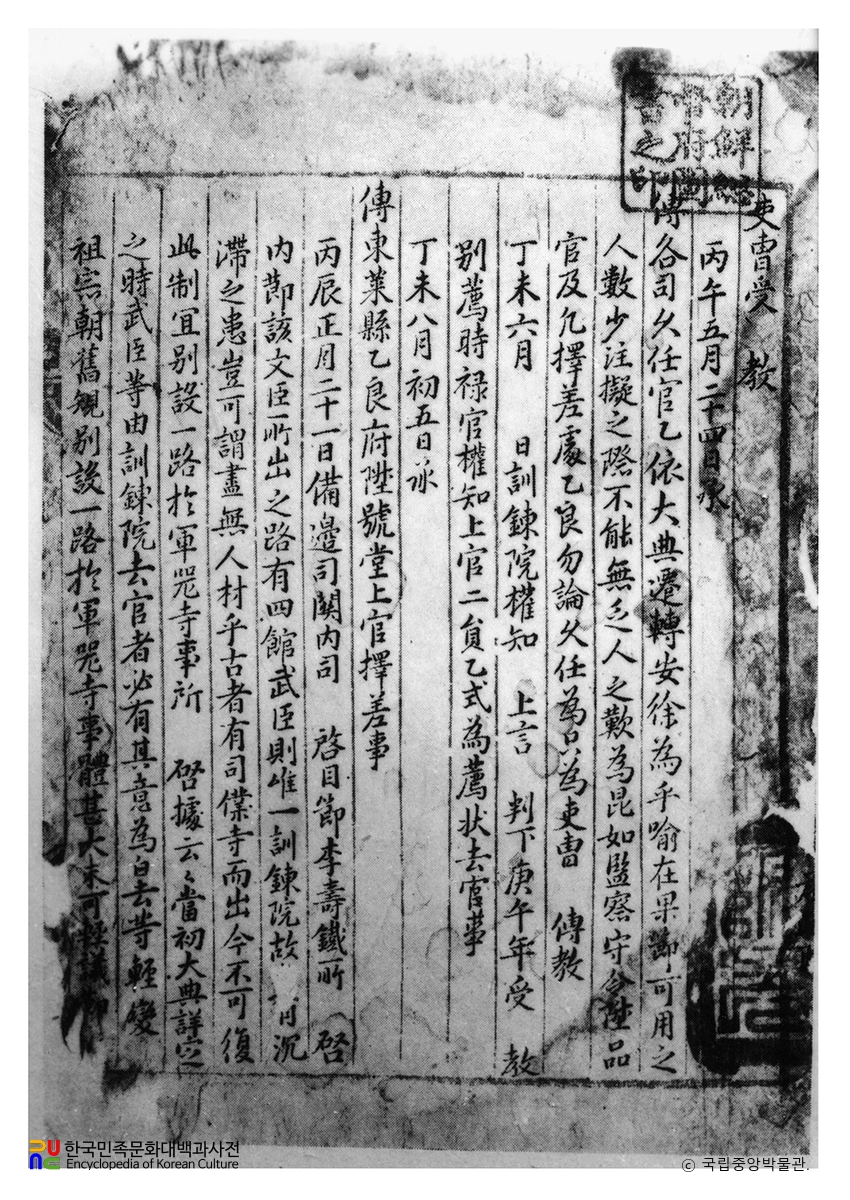 朝鮮總
督府圖
書之印
吏曹受 教
丙午五月二十四日承
傳各司久任官乙依大典遷轉安徐為乎喩在果節可用之
人數少注擬之際不能無乏人之歎為昆如監察守令陞品
官及凡擇差處乙良勿論久任為只為吏曹 傳教
丁未六月 日訓鍊院權知 上言 判下庚午年受 教
別薦時祿官權知上官二員乙式為薦狀去官事
丁未八月初五日承
傳東萊縣乙良府陞號堂上官擇差事
丙辰正月二十一日備邊司關內司 啓目節李壽鐵所 啓
內節該文臣所出之路有四館武臣則唯一訓鍊院故 有沉
滯之患豈可謂盡無人材乎古者有司僕寺而出今不可復
此制宜別設一路於軍器寺事所 啓據云云當初大典詳定
之時武臣等由訓鍊院去官者必有其意為白去等輕變
祖宗朝舊規別設一路於軍器寺事體甚大未可輕議
한국민족문화대백과사전
Encyclopedia of Korean Culture
ⓒ 국립중앙박물관.